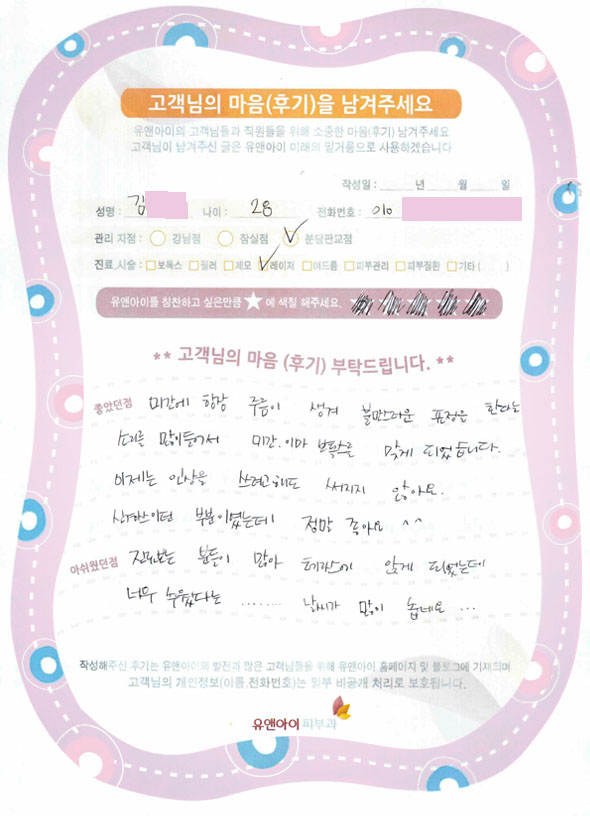 고객님의 마음(후기)을 남겨주세요
유앤아이의 고객님들과 직원들을 위해 소중한 마음(후기) 남겨주세요
고객님이 남겨주신 글은 유앤아이 미래의 밑거름으로 사용하겠습니다
작성일 : 년 월 일
성명 : 김 나이 : 28 전화번호 : 010
관리 지점 : 강남점 잠실점 분당판교점
진료,시술 : 보톡스 필러 제모 레이저 여드름 피부관리 피부질환 기타 ( )
유앤아이를 칭찬하고 싶은만큼 ★ 에 색칠 해주세요.
** 고객님의 마음 (후기) 부탁드립니다. **
좋았던점 미간에 항상 주름이 생겨 불만스러운 표정을 한다는
소리를 많이들어서 미간.이마 보톡스를 맞게 되었습니다.
이제는 인상을 쓰려고해도 써지지 않아요.
신경쓰이던 부분이였는데! 정말 좋아요 ^^
아쉬웠던점 진료보는 분들이 많아 테라스에 앉게 되었는데
너무 추웠다는 ......... 날씨가 많이 춥네요 ...
작성해주신 후기는 유앤아이의 발전과 많은 고객님들을 위해 유앤아이 홈페이지 및 블로그에 기재되며
고객님의 개인정보(이름,전화번호)는 일부 비공개 처리로 보호됩니다.
유앤아이 피부과